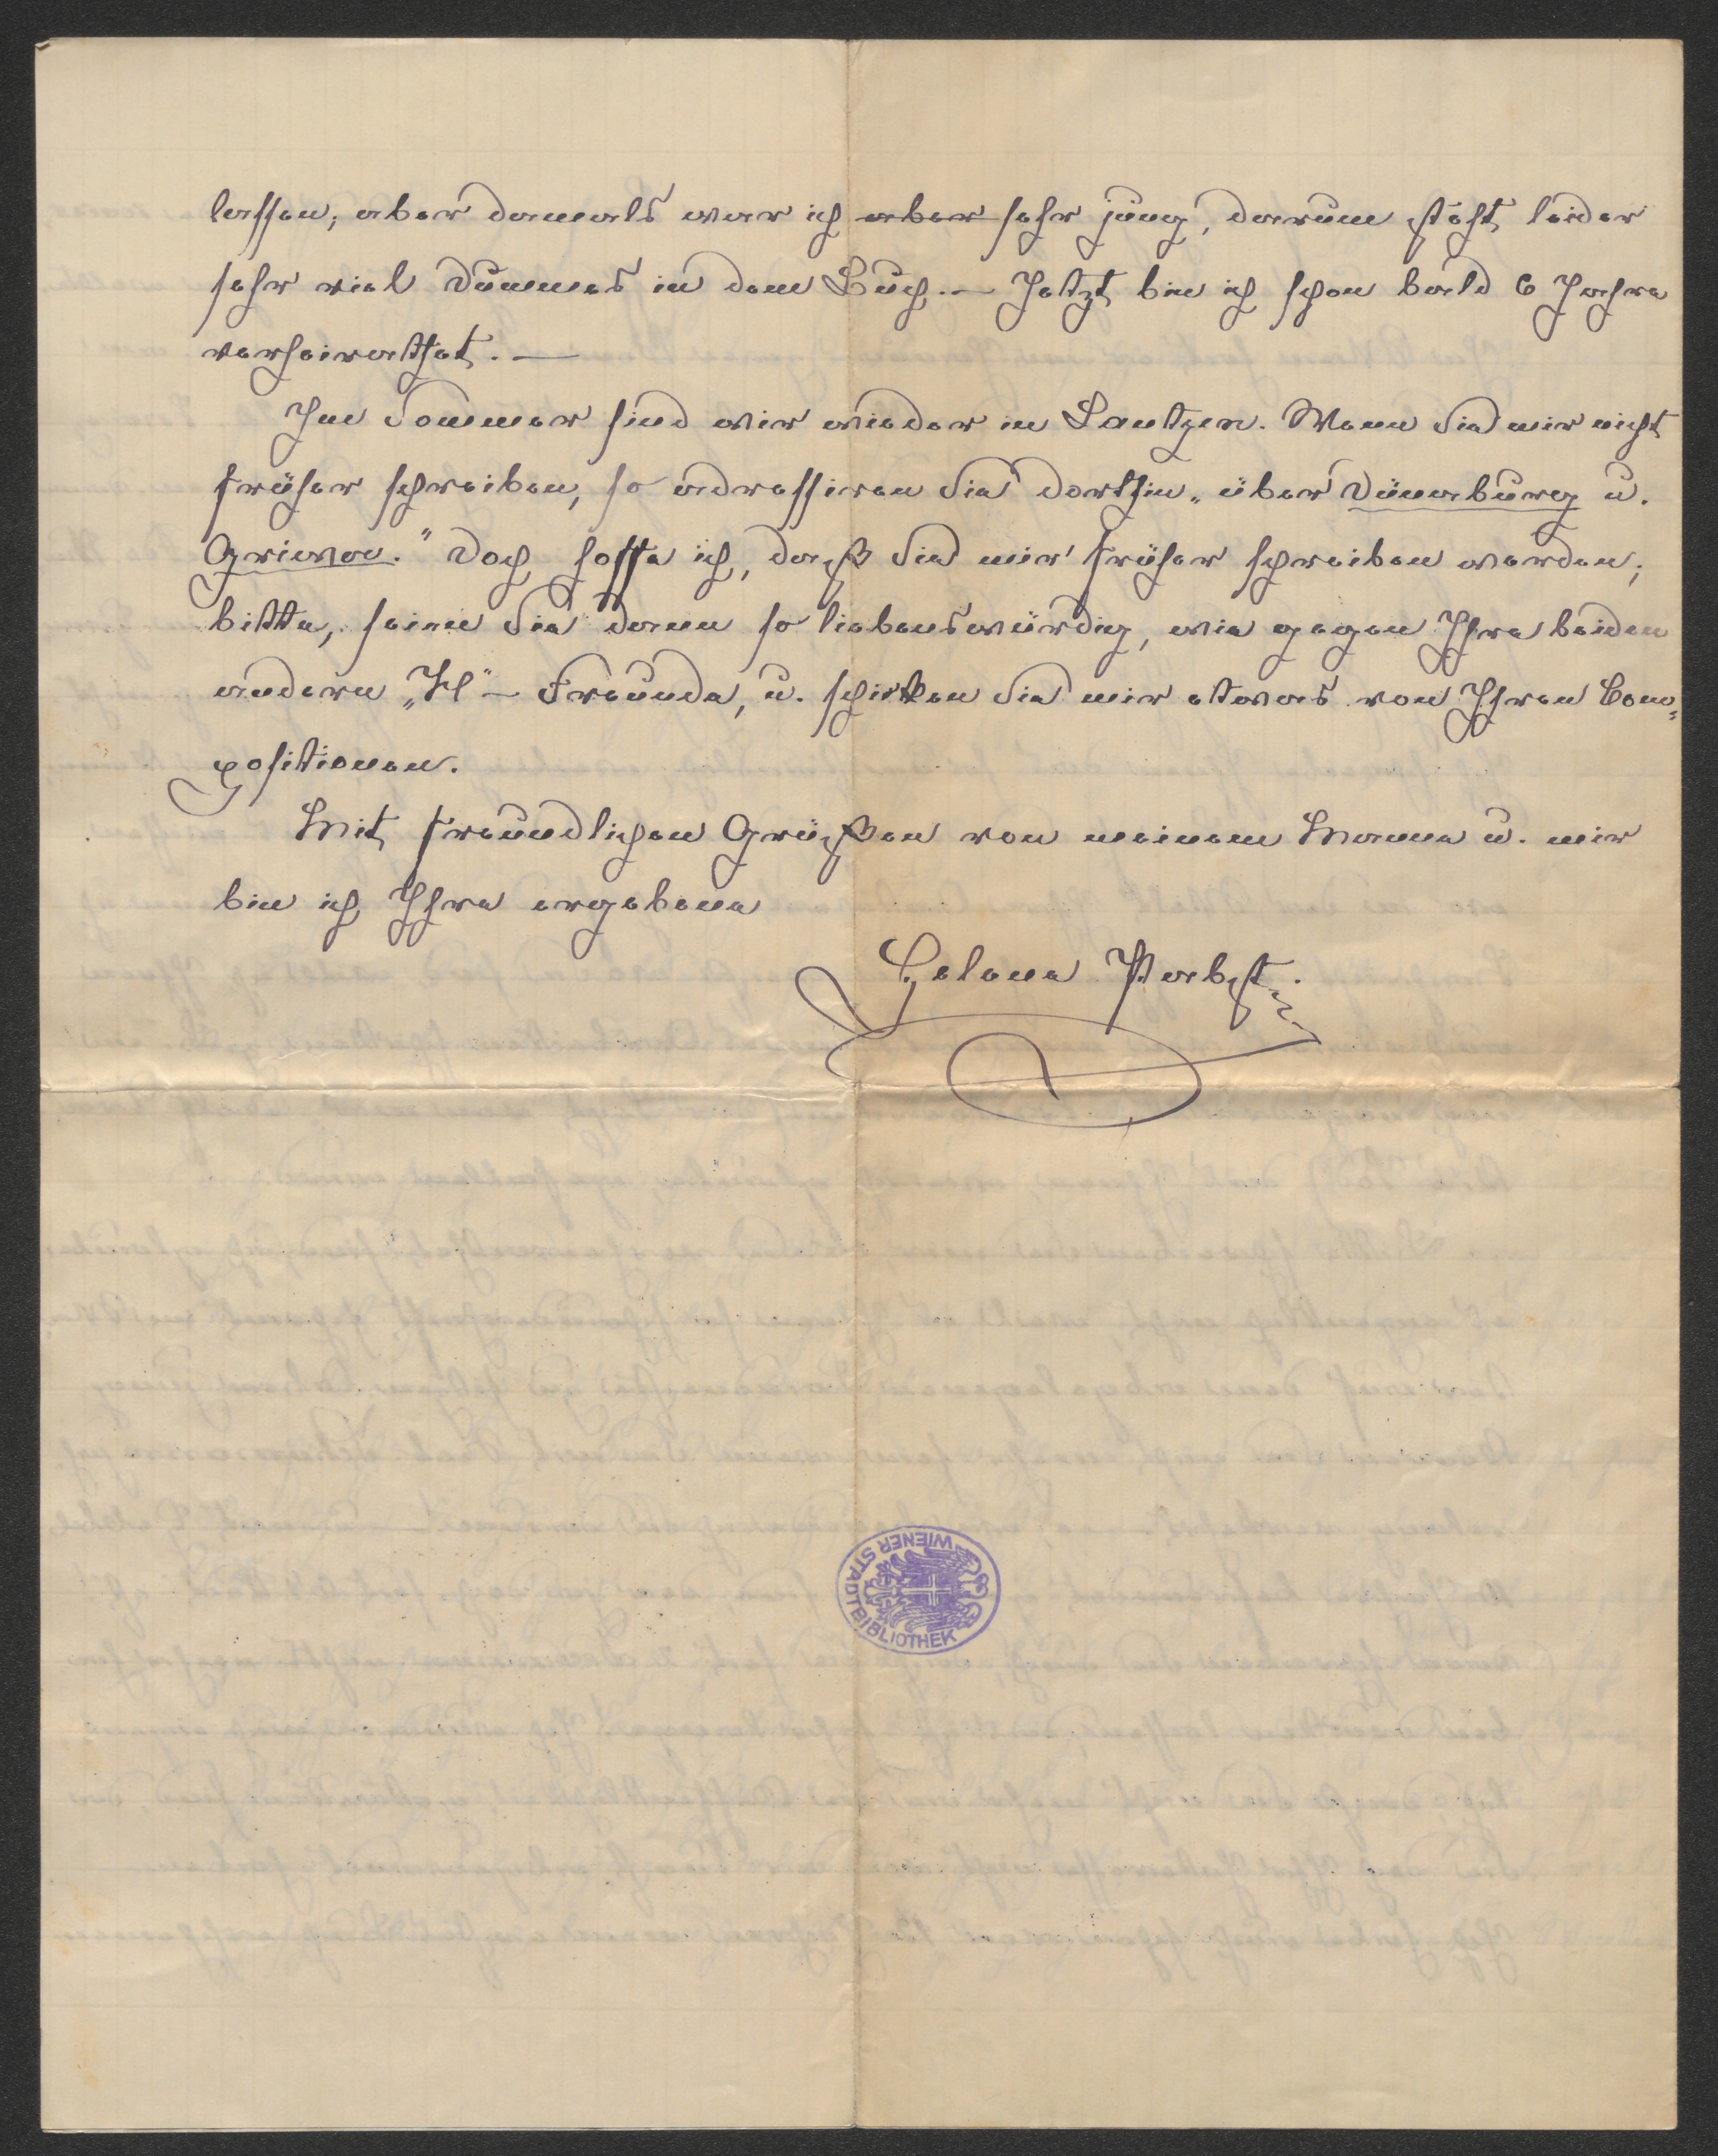 lassen; aber damals war ich aber sehr jung, darum steht leider
sehr viel Dummes in dem Buch. — Jetzt bin ich schon bald 6 Jahre
verheirathet. —
Im Sommer sind wir wieder in Lautzen. Wenn Sie mir nicht
früher schreiben, so adressiren Sie dorthin „über Dünaburg u.
Griwa." Doch hoffe ich, daß Sie mir früher schreiben werden;
bitte, seien Sie dann so liebenswürdig, wie gegen Ihre beiden
andern „H" – Freunde, u. schicken Sie mir etwas von Ihren Com=
positionen.
Mit freundlichen Grüßen von meinem Manne u. mir
bin ich Ihre ergebene
Helene Pabst.
WIENER STADTBIBLIOTHEK